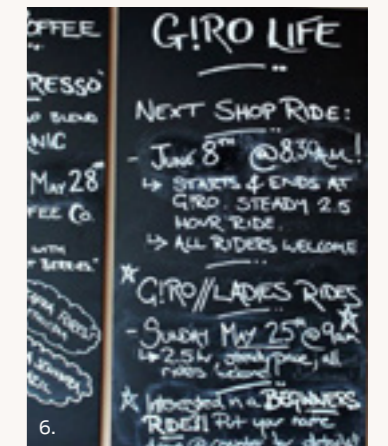 OFFEE
RESSO
BLEND
NIC
MAY 28
FEE CO.
WITH
G!RO LIFE
NEXT SHOP RIDE:
- JUNE 8TH @ 8:30A.M!
↳ STARTS & ENDS AT
G!RO. STEADY 2.5
HOUR RIDE.
↳ ALL RIDERS WELCOME
G!RO//LADIES RIDES
- SUNDAY MAY 25TH @ 9AM
↳ 2.5hr steady pace, all
riders welcome
Interested in a BEGINNERS
RIDE!! Put your name
6.